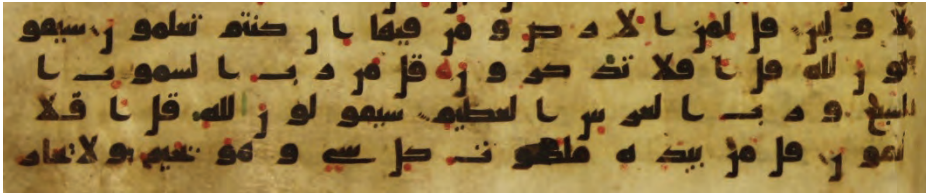 لاولين قل لمن الارض ومن فيها ان كنتم تعلمون سيقو
لون لله قل افلا تذكرون قل من رب السموت ا
لسبع ورب العرش العظيم سيقولون لله قل افلا
تتقون قل من بيده ملكوت كل شي وهو يجير ولا يجار